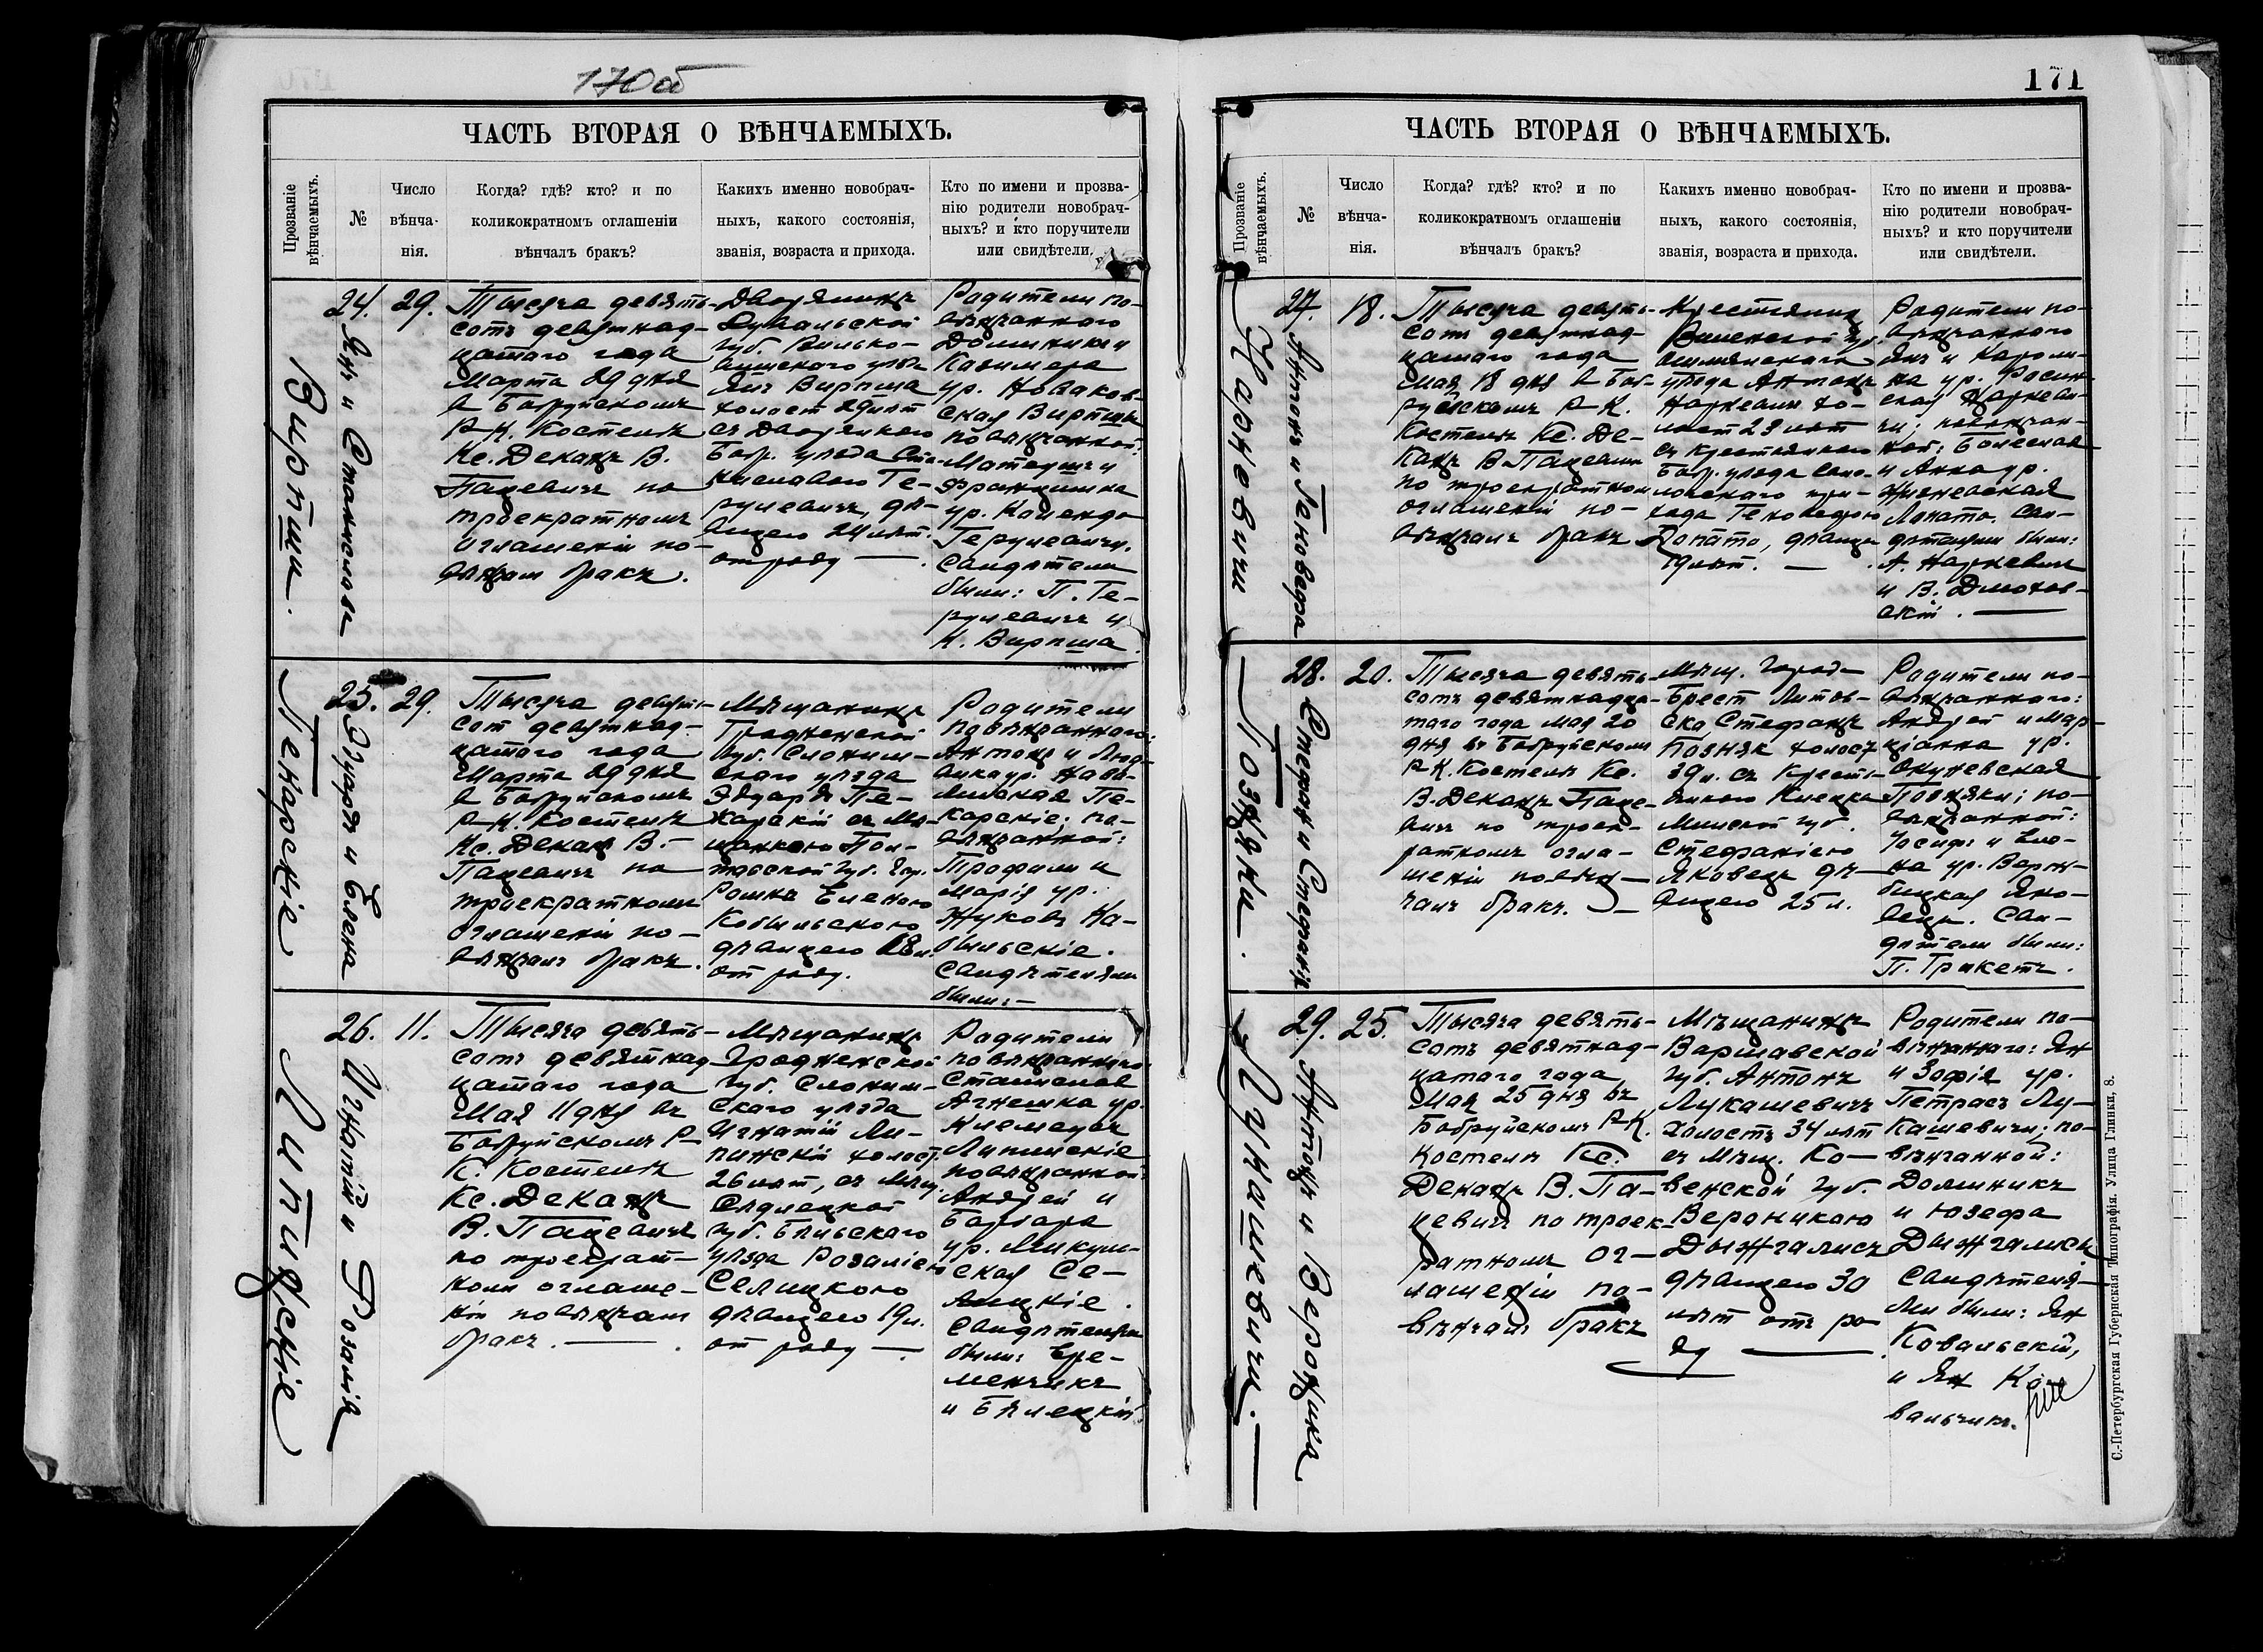 170об
ЧАСТЬ ВТОРАЯ О ВѢНЧАЕМЫХЪ.
Прозваніе вѣнчаемыхъ.
№
Число
вѣнча-
нія.
Когда? гдѣ? кто? и по
коликократномъ оглашеніи
вѣнчалъ бракъ?
Какихъ именно новобрач-
ныхъ, какого состоянія,
званія, возраста и прихода.
Кто по имени и прозва-
нію родители новобрач-
ныхъ? и кто поручители
или свидѣтели.
Вирпши.
Янъ и Станислава
24.
29.
Тысяча девять-
сотъ девятнад-
цатаго года
Марта 29 дня
в Бобруйскомъ
Р-К. Костелѣ
Кс. Деканъ В.
Пацевичъ по
троекратномъ
оглашеніи по-
вѣнчалъ бракъ.
Дворянинъ
Сувальской
губ. Вилько-
вишскаго уѣз.
Янъ Вирпша
холост 29 лѣт
съ Дворянкою
Бобр. уѣзда Ста-
ниславою Ге-
рулевичъ, дѣ-
вицею 24 лѣт.
отроду
Родители по-
вѣнчаннаго
Доминикъ и
Казимера
ур. Новаков-
ская Вирпши
повѣнчанной:
Матеушъ и
Францишка
ур. Календо
Герулевичи.
Свидѣтели
были: П. Ге-
рулевичъ и
К. Вирпша.
Пекарскіе
Эдуардъ и Елена
25.
29.
Тысяча девять-
сот девятнад-
цатаго года
Марта 29 дня
в Бобруйскомъ
Р-К. Костелѣ
Кс. Деканъ В.-
Пацевичъ по
троекратномъ
оглашеніи по-
вѣнчалъ бракъ.
Мѣщанинъ
Гродненской
губ. Слоним-
скаго уѣзда
Эдуардъ Пе-
карскій съ Мѣ-
щанкою Пол-
тавской губ.
Еленою
дѣвицею 18 л.
от роду.
Родители
повѣнчаннаго:
Антонъ и Люд-
вика ур.
Пе-
карскіе; по-
вѣнчанной:
Трофимъ и
Марія ур.
Жуковъ Ко-
быльскіе.
Свидѣтелями
были:-
Липинскіе
Игнатій и Розалія
26.
11.
Тысяча девять-
сотъ девятнад-
цатаго года
Мая 11 дня въ
Бобруйскомъ Р-
К. Костелѣ
Кс. Деканъ
В. Пацевичъ
по троекрат-
номъ оглаше-
ніи повѣнчалъ
бракъ.
Мѣщанинъ
Гродненской
губ. Слоним-
скаго уѣзда
Игнатій Ли-
пинскій холост
26 лѣт, съ Мѣщ.
Сѣдлецкой
губ. Бѣльскаго
уѣзда Розаліею
Селицкою
дѣвицею 19 л.
от роду
Родители
повѣнчаннаго:
Станиславъ
Агнешка ур.
Липинскіе
повѣнчанной:
Андрей и
Барбара
ур. Микуль-
ская Се-
лицкіе.
Свидѣтелями
были: Ере-
менчикъ
и Бѣлецкій
171
ЧАСТЬ ВТОРАЯ О ВѢНЧАЕМЫХЪ.
Прозваніе вѣнчаемыхъ.
№
Число
вѣнча-
нія.
Когда? гдѣ? кто? и по
коликократномъ оглашеніи
вѣнчалъ бракъ?
Какихъ именно новобрач-
ныхъ, какого состоянія,
званія, возраста и прихода.
Кто по имени и прозва-
нію родители новобрач-
ныхъ? и кто поручители
или свидѣтели.
Наркевичи
Антонъ и Геновефа
27.
18.
Тысяча девять-
сотъ девятнад-
цатаго года
Мая 18 дня в Боб-
руйскомъ Р-К.
Костелѣ Кс. Де-
канъ В. Пацевичъ
по троекратном
оглашеніи по-
вѣнчалъ бракъ
Крестьянинъ
Виленской губ.
Ошмянскаго
уѣзда Антонъ
Наркевичъ хо-
лост 28 лѣт
съ крестьянкою
Бобр. уѣзда
при-
хода Геновефою
Лопато, дѣвицею
19 лѣт.
Родители по-
вѣнчаннаго
Янъ и Кароли-
на ур.
Наркеви-
чи; повѣнчан-
ной: Болеслав
и Анна ур.
Лопато. Сви-
дѣтелями были:
А. Наркевичъ
и В. Длотов-
скій.
Позняки.
Стефан и Стефанія
28.
20.
Тысяча девять-
сотъ девятнадца-
таго года Мая 20
дня въ Бобруйскомъ
Р.К. Костелѣ Кс.
В. Деканъ Паце-
вичъ по троек-
ратномъ огла-
шеніи повѣн-
чалъ бракъ.
Мѣщ. города
Брест Литов-
ска, Стефанъ
Познякъ холост
39 л. съ Кресть-
янкою Клецка
Минской губ.
Стефаніею
Яковецъ дѣ-
вицею 25 л.
Родители по-
вѣнчаннаго:
Андрей и Мар-
ціанна ур.
Окуневская
Позняки; по-
вѣнчанной:
Іосифъ и Еле-
на ур. Верж-
бицкая Яко-
вецъ. Сви-
дѣтели были:
П. Тракетъ.
Лукашевичи.
Антонъ и Вероника
29.
25.
Тысяча девять-
сотъ девятнад-
цатаго года
Мая 25 дня въ
Бобруйскомъ Р-К.
Костелѣ Кс.
Деканъ В. Па-
цевичъ по троек-
ратномъ ог-
лашеніи по-
вѣнчалъ бракъ
Мѣщанинъ
Варшавской
губ. Антонъ
Лукашевичъ
холостъ 34 лѣт
съ Мѣщ. Ко-
венской губ.
Вероникою
Дынгалисъ
дѣвицею 30
лѣт отъ ро-
ду
Родители по-
вѣнчаннаго: Ян
и Зофія ур.
Петрасъ Лу-
кашевичи; по-
вѣнчанной:
Доминикъ
и Юзефа
Дынгалисы
Свидѣтеля-
ми были: Ян
Ковальскій,
и Ян Ко-
вальчикъ.
С.-Петербургская Губернская Типографія. Улица Глинки, 8.